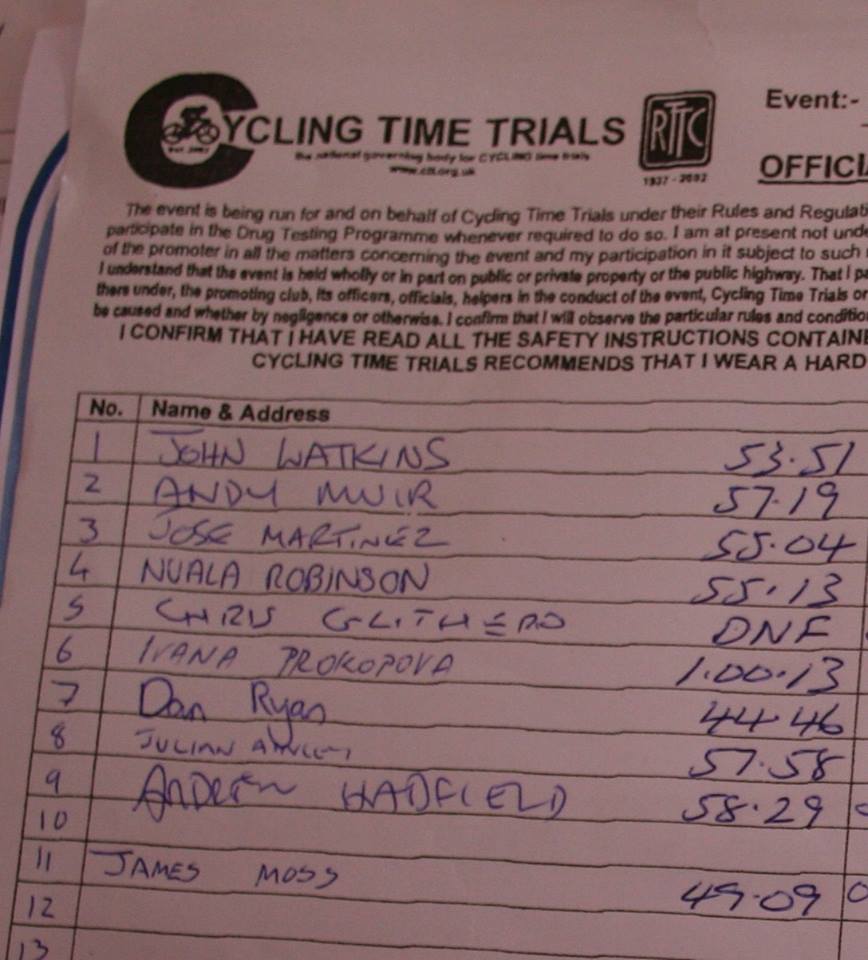 CYCLING TIME TRIALS
the national governing body for CYCLING time trials
www.ctt.org.uk
RTTC
1937 - 2002
Event:-
OFFICI
The event is being run for and on behalf of Cycling Time Trials under their Rules and Regulati
participate in the Drug Testing Programme whenever required to do so. I am at present not unde
of the promoter in all the matters concerning the event and my participation in it subject to such
I understand that the event is held wholly or in part on public or private property or the public highway. That I pa
thers under, the promoting club, its officers, officials, helpers in the conduct of the event, Cycling Time Trials or
be caused and whether by negligence or otherwise. I confirm that I will observe the particular rules and conditio
I CONFIRM THAT I HAVE READ ALL THE SAFETY INSTRUCTIONS CONTAINE
CYCLING TIME TRIALS RECOMMENDS THAT I WEAR A HARD
No. Name & Address
1 JOHN WATKINS 53.51
2 ANDY MUIR 57.19
3 JOSE MARTINEZ 55.04
4 NUALA ROBINSON 55.13
5 CHRIS GLITHERO DNF
6 IVANA PROKOPOVA 1.00.13
7 Dan Ryan 44.46
8 JULIAN 57.58
9 ANDREW HADFIELD 58.29
10
11 JAMES MOSS 49.09
12
13